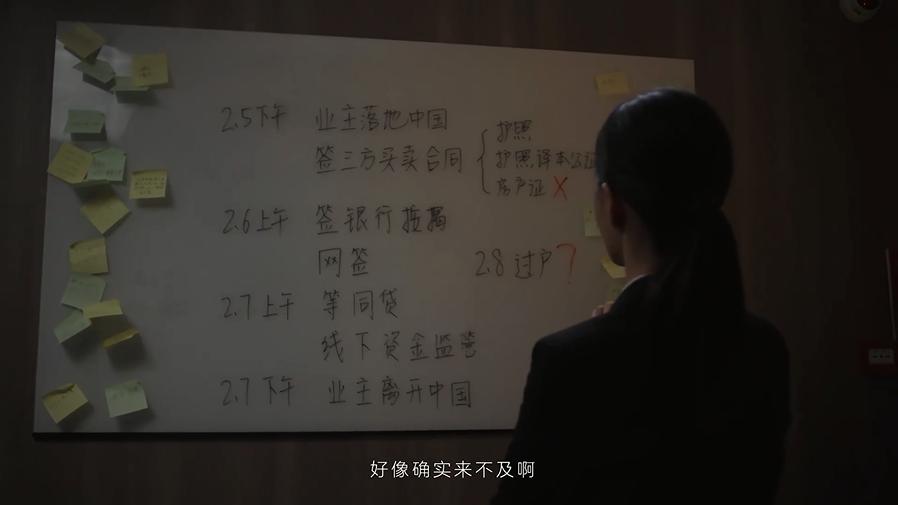 2.5下午 业主落地中国
签三方买卖合同
护照
护照译本公证
房产证 X
2.6上午 签银行按揭
网签
2.8过户?
2.7上午 等同贷
线下资金监管
2.7下午 业主离开中国
好像确实来不及啊